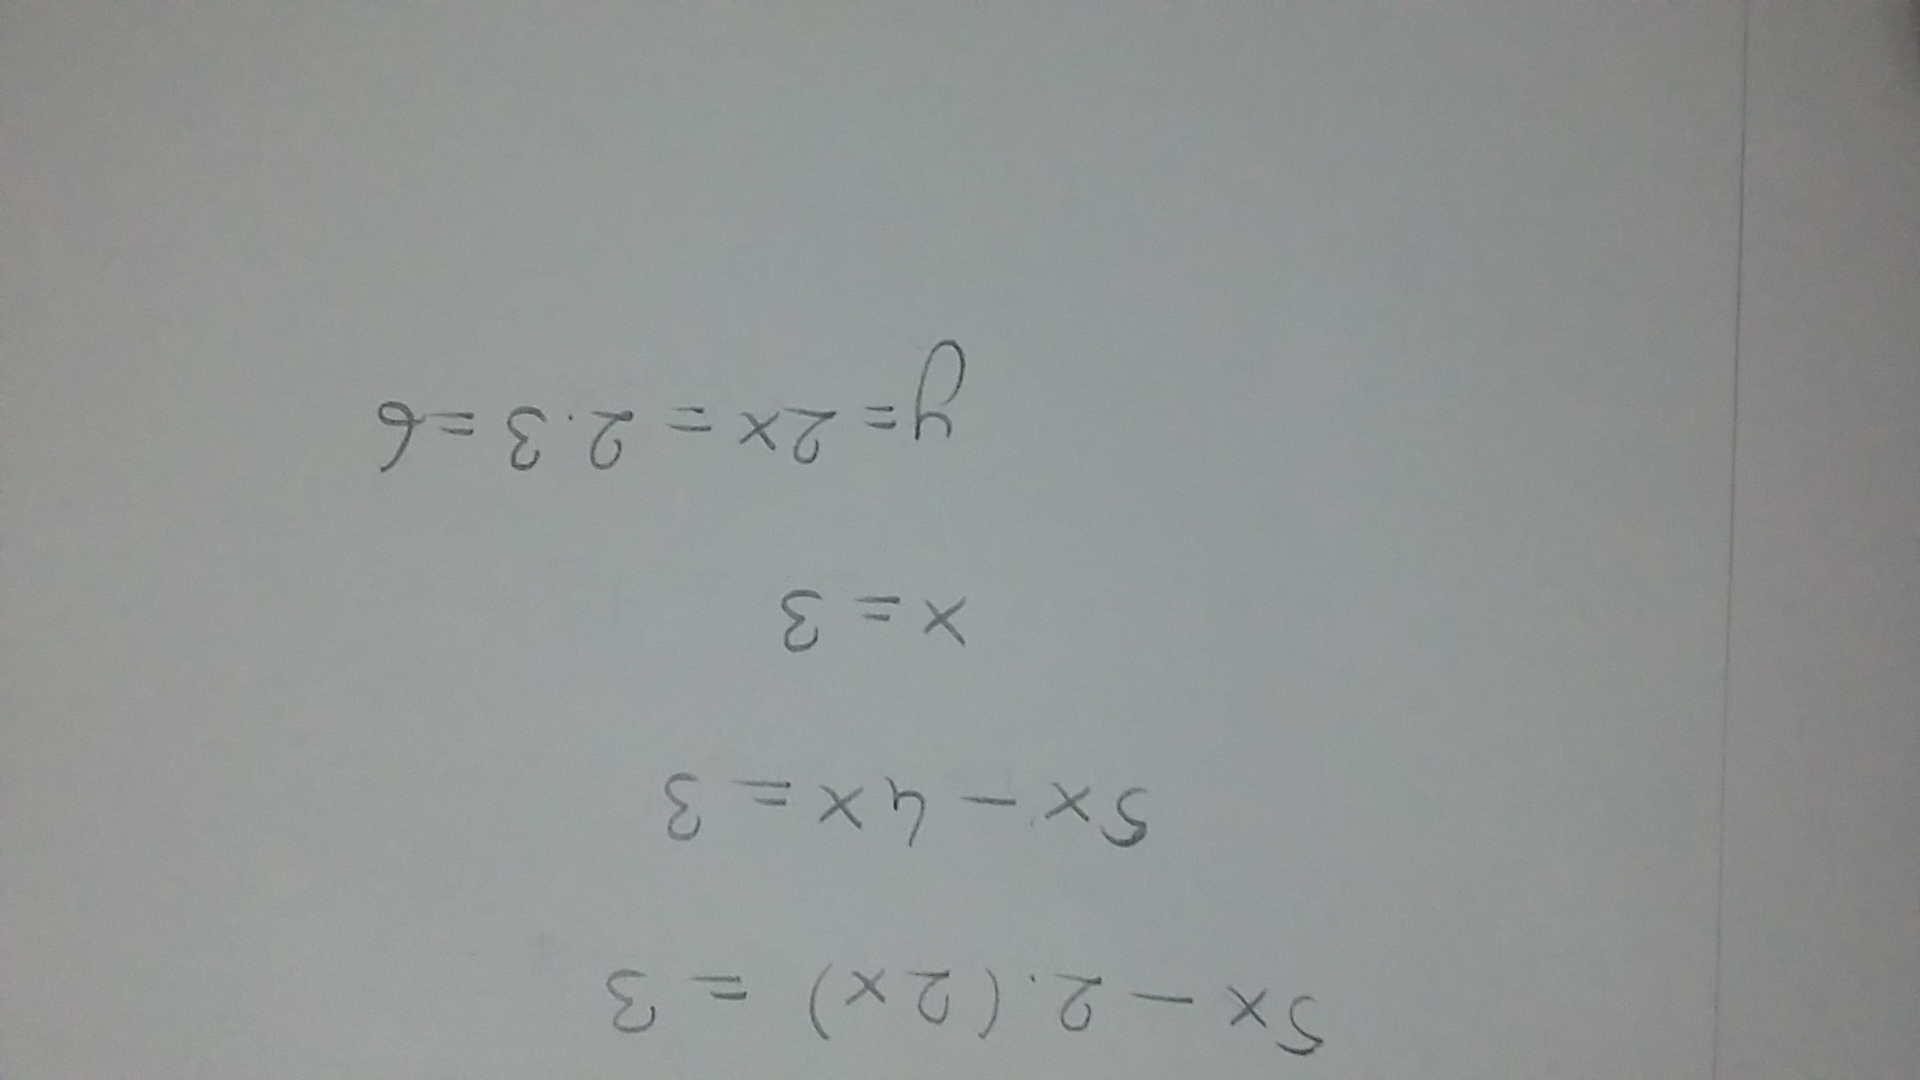 5x - 2.(2x) = 3
5x - 4x = 3
x = 3
y = 2x = 2.3 = 6